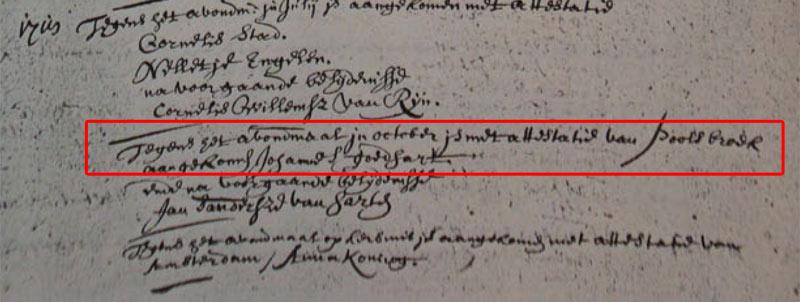 Tegens het avondm: in Julij is aangekomen met attestatie
Cornelis Stard.
Nelletje Engelen.
na voorgaande belijdenisse
Cornelis Willemsz van Rijn.
Tegens het avondmaal in october is met attestatie van Poolsbroek
aangekomen Johannes Goedhart
ende na voorgaande belijdenisse
Jan van
Tegens het avondmaal op kersmis is aangekomen met attestatie van
Amsterdam, Anna Koning.